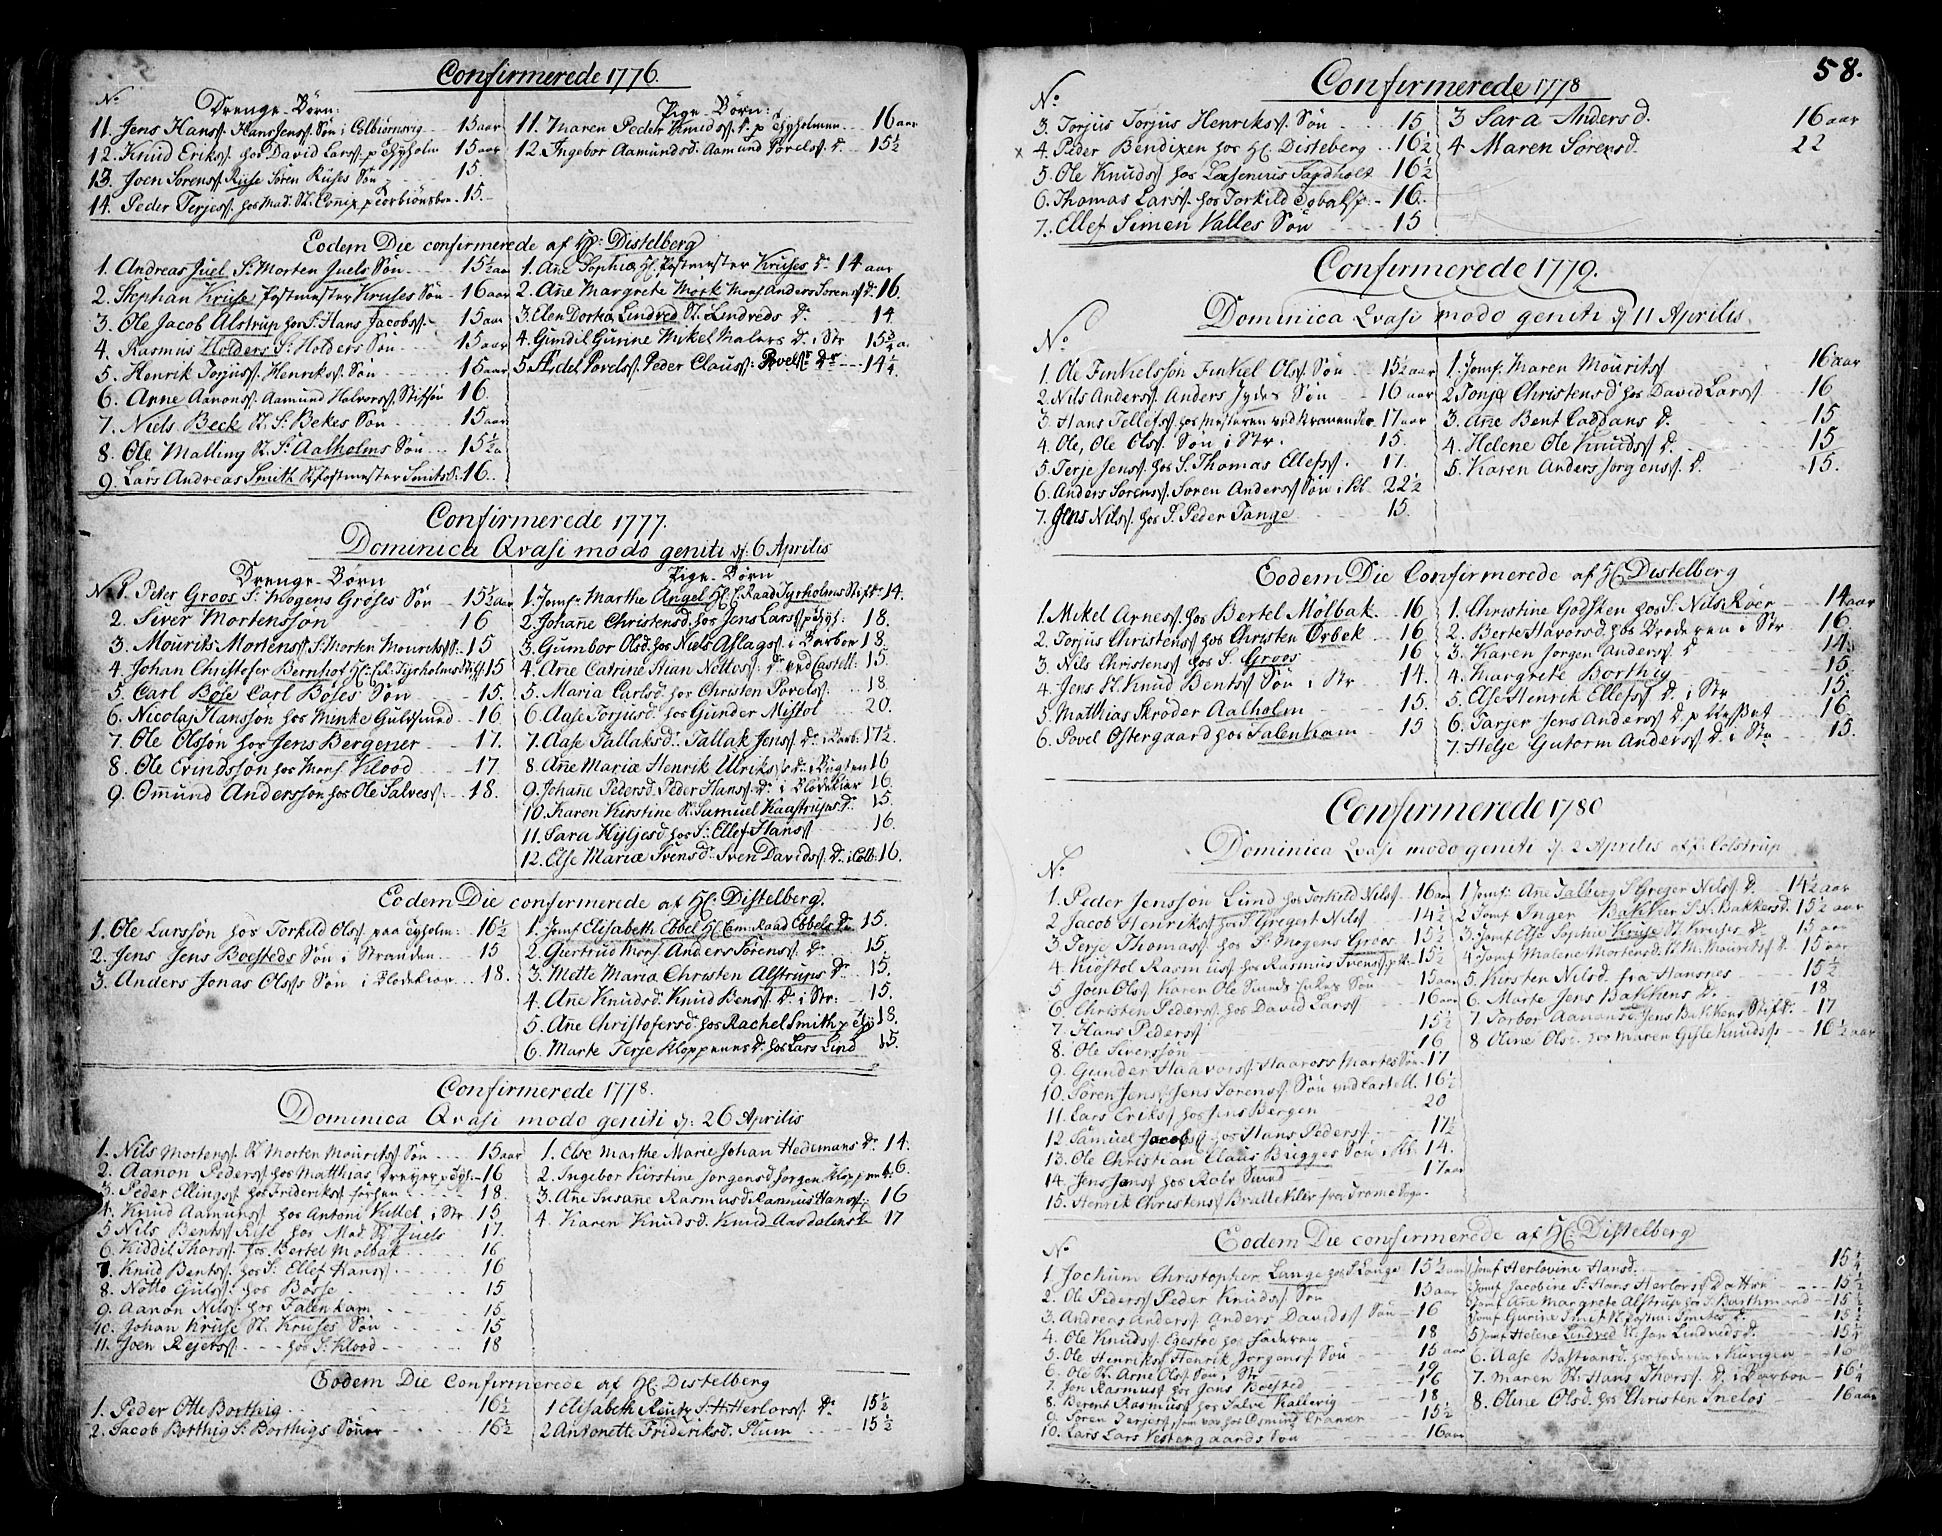 Confirmerede 1776.
No
Drenge-Børn:
11. Jens Hanss. Hans Jenss. Søn i Colbiörnsvig 15 aar
12. Knud Erikss. hos David Larss. p Tyholm 15 aar
13. Joen Sorenss. Ruse Søren Ruses Søn 15.
14. Peder Terjess. hos Mad. Sl. 15.
Pige-Børn:
11. Maren Peder Knudss. D. p Tyholmen 16 aar
12. Ingebor Aamundsd. Aamund Povelss. D. 15½
Eodem Die confirmerede af Hr. Distelberg
1. Andreas Juel S. Morten Juels Søn 15½ aar
2. Stephan Kruse, Postmester Kruses Søn 16 aar
3. Ole Jacob Alstrup hos S. Hans Jacobss. 15 aar
4. Rasmus Holders S. Holders Søn 15 aar
5. Henrik Torjuss. Henrikss. Søn 15 aar
6. Anne Aanonss. Aamund Halvorss. Stifsøn 16.
7. Niels Beck Sl. S. Bekes Søn 15 aar
8. Ole Malling Sl. S. Aalholms Søn 15½ a
9. Lars Andreas Smith Sl. Postmester Smits S. 16.
1. Añe Sophia, Postmester Kruses D. 14 aar
2. Añe Margrete Mørk Mons. Anders Sorenss D. 16.
3. Elen Dorka Lindred Sl. Lindreds D. 14
4. Gundil Gurine Mikel Malers D. i Str 15¾ a.
5. Sidel Povelss. Peder Clauss: Povels D. 14¼
Confirmerede 1777.
Dominica Qvasi modo geniti d: 6 Aprilis
Drenge-Børn
No 1. Peter Groos S. Mogens Groses Søn 15½ aar
2. Siver Mortensson 16
3. Mouriks Mortenss. S. Morten Mourikss S. 15
4. Johan Christofer Bernhof Tyrholms 15
5. Carl Böse Carl Böses Søn 15.
6. Nicolaj Hanssøn hos Minke Guldsmed 16
7. Ole Olssøn hos Jens Bergener 17.
8. Ole Erindssøn hos Mons. Klood 17
9. Omund Anderssøn hos Ole Salvess. 18.
Pige-Børn
1. Jomf. Marthe Angel Raad Tyrholms Stif D. 14.
2. Johañe Christensd. hos Jens Larss p Tyh. 18.
3. Gumbor Olsd. hos Niels Aslags i Barboe 18.
4. Añe Catrine Stian Nottoss. D. ved Castell: 15.
5. Maria Carlsd. hos Christen Povelss. 18
6. Aase Torjusd. hos Gunder Mistol 20.
7. Aase Tallaksd. Tallak Jenss. D. i Barb. 17½.
8. Añe Maria Henrik Ulrikss D. i Bugten 16
9. Johañe Pedersd. Peder Hanss. D. i Blødekiær 16
10. Karen Kirstine Sl. Samuel Kaastrups D. 15.
11. Sara Hyljesd. hos S. Ellef Hanss 16.
12. Else Maria Svensd. Sven Davidss. D. i Colb. 16.
Eodem Die confirmerede af Hr. Distelberg.
1. Ole Larssøn hos Torkild Olss paa Tyholm: 16½
2. Jens Jens Boesteds Søn i Stranden 15
3. Anders Jonas Olss Søn i Blødekiær 18.
1. Jomf Elisabeth Ebbel Hr. Cam: Raad Ebbels D. 15.
2. Giertrud Mons. Anders Sørenss D. 15.
3. Mette Maria Christen Alstrups D. 15.
4. Añe Knudsd. Knud Benss. D. i Str: 15.
5. Añe Christofersd. hos Rachel Smith p Ty 18.
6. Marte Terje Kloppenes D. hos Lars Lind 15.
Confirmerede 1778.
Dominica Qvasi modo geniti d: 26 Aprilis
1. Nils Mortenss. Sl. Morten Mouritss Søn 15 aar
2. Aanon Pederss hos Matthias Dreyer p Tyh. 16
3. Peder Ellingss. hos Friderikss. 18.
4. Knud Aamunss hos Antoni Kittel. i Str 15
5. Nils Bentss Rise hos Mad. Sl. Juels 17.
6. Kiddil Thorss. hos Bertel Molbak 16
7. Knud Bentss. hos S. Ellef Hanss. 16
8. Notto Gulss: hos Bosse 15
9. Aanon Nilss. hos Falenkam 15
10. Johan Kruse Sl. Kruses Søn 15
11. Joen Rejerss. hos S. Klood 18
1. Else Marthe Marie Johan Hedemans D. 14.
2. Ingebor Kirstine Jorgensd. Jorgen Kloppens D. 16.
3. Añe Susañe Rasmusd. Rasmus Hanss: 16
4. Karen Knudsd. Knud Aasdalens D. 17
Eodem Die Confirmerede af Hr. Distelberg
1. Peder Otte Borthig 16½
2. Jacob Borthig S. Borthigs Sønner 16½
1 Elisabeth Reutz S. H. Herlovss. D. 15½
2 Antonette Frideriksd. Plum 15½
58.
Confirmerede 1778
No
3. Torjus Torjus Henrikss. Søn 15
x 4. Peder Bendixen hos Hr. Disteberg 16½
5. Ole Knudss hos Laxenius Tardholt 16½
6. Thomas Larss. hos Torkild 16.
7. Ellef Simen Valles Søn 15
3 Sara Andersd. 16 aar
4 Maren Sørensd. 22
Confirmerede 1779.
Dominica Qvasi modo geniti d 11 Aprilis
No
1. Ole Finkelssøn Finkel Olss Søn 15½ aar
2. Nils Anderss. Anders Jydes Søn 16 aar
3. Hans Tellefss. hos Mesteren ved 17 aar
4. Ole, Ole Olss. Søn i Str. 15.
5. Terje Jenss. hos S. Thomas Ellefss. 17.
6. Anders Sorenss. Søren Anderss Søn i Kl 22½
7. Jens Nilss. hos S. Peder Tange 15.
1. Jomf. Maren Mouritss 16 aar
2. Tonje Christensd hos David Larss. 16
3. Añe Bent Laddans D. 15
4. Helene Ole Knudss D. 15
5. Karen Anders Jorgenss. D. 15.
Eodem Die Confirmerede af Hr Distelberg
1. Mikel Arness. hos Bertel Mölbak. 16
2. Torjus Christenss hos Christen Orbek 16
3. Nils Christenss hos S. Groos 16
4. Jens Sl. Knud Bentss Søn i Str 14.
5. Matthias Skroder Aalholm 15.
6. Povel Ostergaard hos Falenkam 15
1. Christine Godsken hos S. Nils Röer 14 aar
2. Berte Havorsd. hos Broderen i Str 16.
3. Karen Jorgen Anderss D 14.
4. Margrete Borthig 15
5. Else Henrik Ellefss D. i Str 15.
6. Tarjer Jens Anderss D. p 16.
7. Helje Gutorm Anderss D. i Str 15.
Confirmerede 1780
Dominica Qvasi modo geniti d. 2 Aprilis af Colstrup
No
1. Peder Jenssøn Lind hos Torkild Nilss 16 aar
2 Jacob Henrikss hos S Gregert Nilss 14½
3. Terje Thomass. hos S. Mogens Groos 15½
4. Kiöstol Rasmuss hos Rasmus Svenss 15½
5 Joen Olss Karen Ole Søn 15 aar
6. Christen Pederss. hos David Larss 16 aar
7. Hans Pederss 15½
8. Ole Siverssön 16
9. Gunder Haavorss. Haavors Martes Søn 17
10. Soren Jenss Jens Sorenss Søn ved Castell. 16½
11. Lars Erikss hos Jens Bergen 20
12. Samuel Jacobss hos Hans Pederss 17½
13. Ole Christian Claus Brigges Søn i Kl. 14.
14. Jens Jenss hos Rolv Sund 17 aar
15. Henrik Christenss fra Tromø Sogn.
1 Jomf: Añe Talberg S. Greger Nilss D. 14½ aar
2 Jomf Inger Bakker S. N. Bakkers d. 15½ aar
3. Jomf Else Sophia Kruse Sl. Kruses D. 15 aar
4 Jomf Malene Mortensd. Sl. M. Mouritss D. 15 aar
5. Kirsten Nilsd. fra Hasnes 15½
6. Marte Jens Bakkens D. 18
7 Torbor Aanonsd. Jens Bakkens Stif D. 17
8 Oline Olsd. hos Maren Gisle Knudss 16½ aar
Eodem Die confirmerede af Hr. Distelberg
No
1. Jochum Christopher Lange hos S Lange 15½ aar
2. Ole Pederss Peder Knudss Søn 15 aar
3. Andreas Anderss. Anders Davidss Søn 16
4. Ole Knudss. Egestø hos Faderen 18
5. Ole Henrikss Henrik Jorgenss Søn 15 aar
6. Ole Sl. Arne Olss Søn i Str 19
7. Jon Rasmuss hos Jens Boested 16
8. Berent Rasmuss hos Salve Kallevig 18
9. Soren Terjess, som var hos Osmund Tranen 15½
10. Lars Lars Vestergaards Søn 16 aar
Jomf Herlovine Hansd. 15¼
Jomf Jacobine S. Hans Herlovss Datter 15½
Jomf Añe Margrete Alstrup hos S. Borthmand 15½
Jomf Gurine Smit Sl. Postm: Smites D. 15½
5 Jomf Helene Lindved Sl. Jan Lindveds D. 15¼
6. Aase Bastiansd. hos Faderen i Kurigen 16
7. Maren Sl. Hans Thorss. D. i Barboe 16¼
8. Oline Olsd. hos Christen Sneløs 16 aar